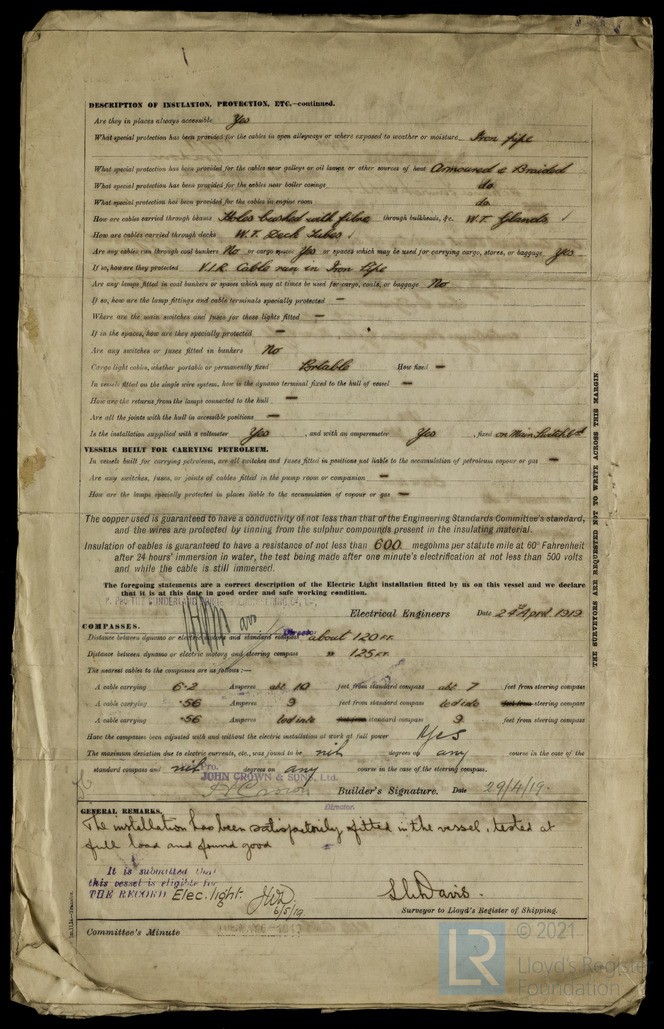 DESCRIPTION OF INSULATION, PROTECTION, ETC.—continued.
Are they in places always accessible Yes
What special protection has been provided for the cables in open alleyways or where exposed to weather or moisture Iron pipe
What special protection has been provided for the cables near galleys or oil lamps or other sources of heat Armoured & Braided
What special protection has been provided for the cables near boiler casings do
What special protection has been provided for the cables in engine room do.
How are cables carried through beams Holes bushed with fibre through bulkheads, &c. W.T. Glands /
How are cables carried through decks W.T. Deck Tubes /
Are any cables run through coal bunkers No or cargo spaces Yes or spaces which may be used for carrying cargo, stores, or baggage Yes
If so, how are they protected V.I.R. Cable run in Iron Pipe
Are any lamps fitted in coal bunkers or spaces which may at times be used for cargo, coals, or baggage No
If so, how are the lamp fittings and cable terminals specially protected —
Where are the main switches and fuses for these lights fitted —
If in the spaces, how are they specially protected —
Are any switches or fuses fitted in bunkers No
Cargo light cables, whether portable or permanently fixed Portable How fixed —
In vessels fitted on the single wire system, how is the dynamo terminal fixed to the hull of vessel —
How are the returns from the lamps connected to the hull —
Are all the joints with the hull in accessible positions —
Is the installation supplied with a voltmeter Yes , and with an amperemeter Yes , fixed on Main Switchbd
VESSELS BUILT FOR CARRYING PETROLEUM.
In vessels built for carrying petroleum, are all switches and fuses fitted in positions not liable to the accumulation of petroleum vapour or gas —
Are any switches, fuses, or joints of cables fitted in the pump room or companion —
How are the lamps specially protected in places liable to the accumulation of vapour or gas —
The copper used is guaranteed to have a conductivity of not less than that of the Engineering Standards Committee's standard,
and the wires are protected by tinning from the sulphur compounds present in the insulating material.
Insulation of cables is guaranteed to have a resistance of not less than 600 megohms per statute mile at 60° Fahrenheit
after 24 hours' immersion in water, the test being made after one minute's electrification at not less than 500 volts
and while the cable is still immersed.
The foregoing statements are a correct description of the Electric Light installation fitted by us on this vessel and we declare
that it is at this date in good order and safe working condition.
Electrical Engineers Date 24th April 1919
Director
COMPASSES.
Distance between dynamo or electric motors and standard compass about 120 FT.
Distance between dynamo or electric motors and steering compass " 125 FT.
The nearest cables to the compasses are as follows:—
A cable carrying 6.2 Amperes abt 10 feet from standard compass abt 7 feet from steering compass
A cable carrying .56 Amperes 9 feet from standard compass led into feet from steering compass
A cable carrying .56 Amperes led into feet from standard compass 9 feet from steering compass
Have the compasses been adjusted with and without the electric installation at work at full power Yes
The maximum deviation due to electric currents, etc., was found to be nil degrees on any course in the case of the
standard compass and nil degrees on any course in the case of the steering compass.
Pro.
JOHN CROWN & SONS, Ltd.
H Crown Builder's Signature. Date 29/4/19.
Director.
GENERAL REMARKS.
The installation has been satisfactorily fitted in the vessel, tested at
full load and found good
It is submitted that
this vessel is eligible for
THE RECORD Elec. light.
6/5/19
Davis.
Surveyor to Lloyd's Register of Shipping.
Committee's Minute
THE SURVEYORS ARE REQUESTED NOT TO WRITE ACROSS THIS MARGIN
LR
© 2021
Lloyd's Register
Foundation